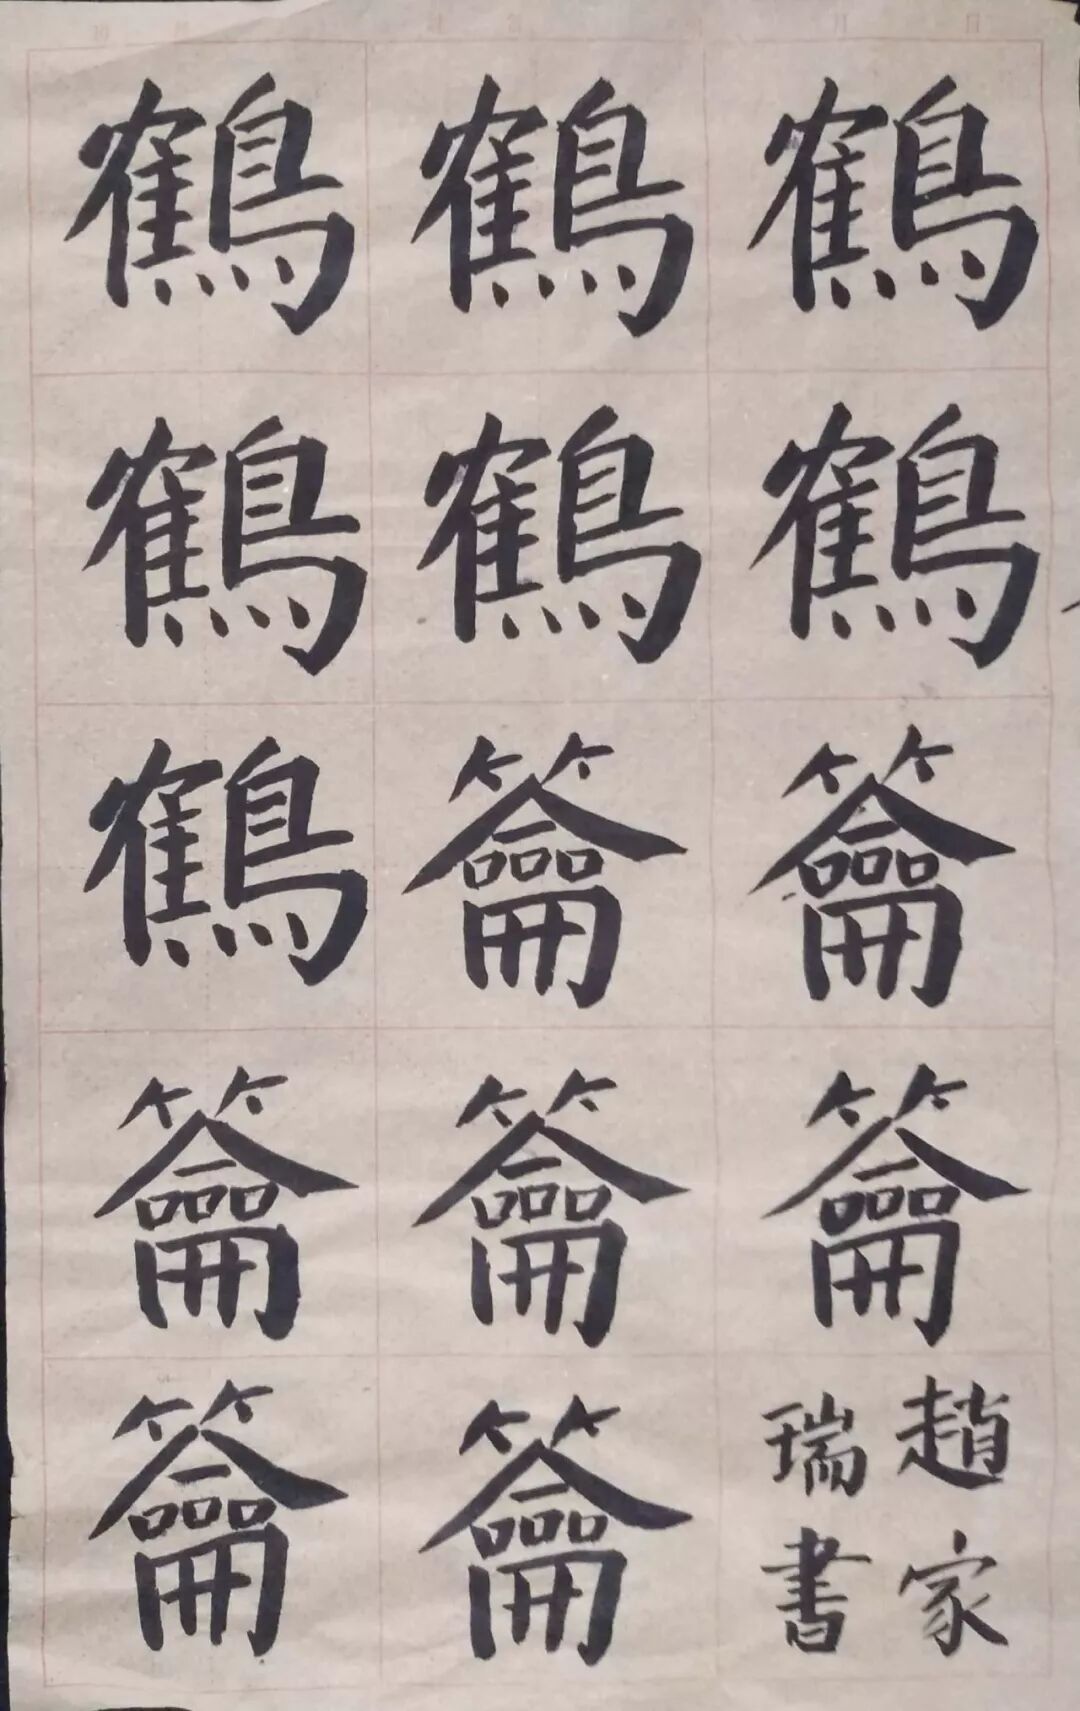 鶴鶴鶴
鶴鶴鶴
鶴籥籥
籥籥籥
籥籥
趙家
瑞書